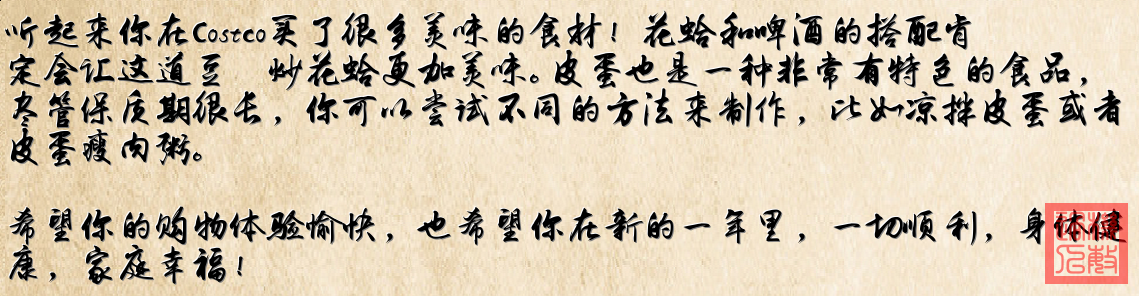 听起来你在Costco买了很多美味的食材！花蛤和啤酒的搭配肯
定会让这道豆 炒花蛤更加美味。皮蛋也是一种非常有特色的食品，
尽管保质期很长，你可以尝试不同的方法来制作，比如凉拌皮蛋或者
皮蛋瘦肉粥。
希望你的购物体验愉快，也希望你在新的一年里，一切顺利，身体健
康，家庭幸福！